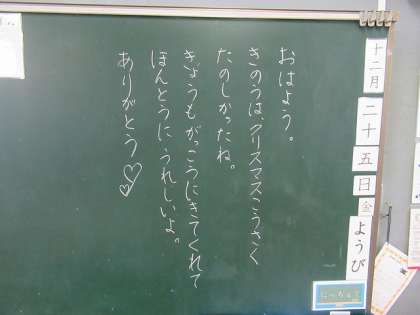 十二月
二十五日
金ようび
おはよう。
きのうは、クリスマスこうさく
たのしかったね。
きょうもがっこうにきてくれて
ほんとうに、うれしいよ。
ありがとう♡♡